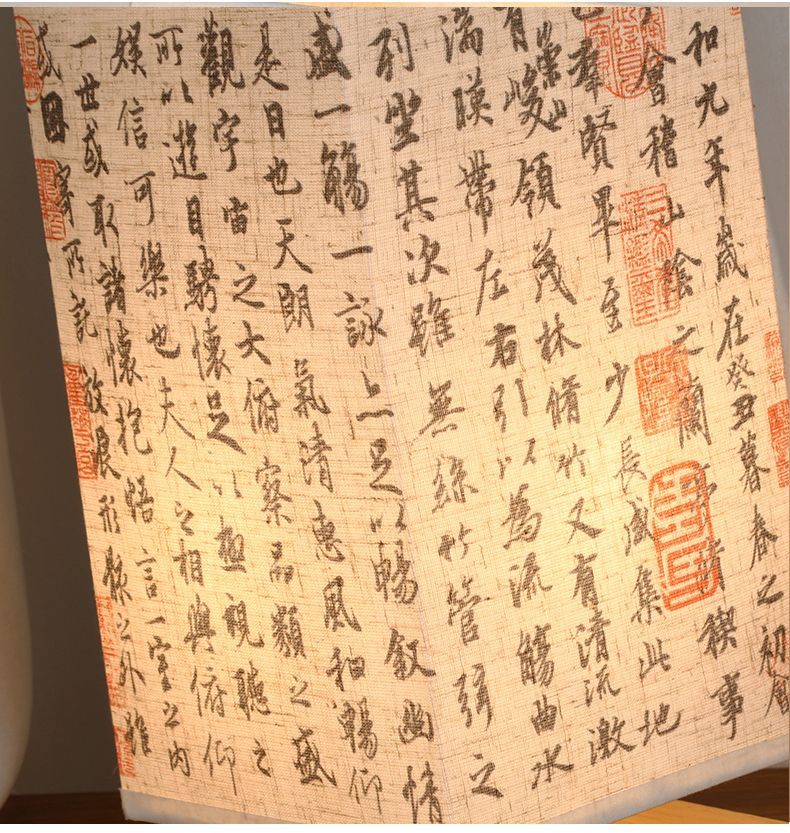 和九年歲在癸丑暮春之初會
會稽山陰之蘭亭脩禊事
也羣賢畢至少長咸集此地
有崇山峻領茂林脩竹又有清流激
湍暎帶左右引以為流觴曲水
列坐其次雖無絲竹管弦之
盛一觴一詠亦足以暢敘幽情
是日也天朗氣清惠風和暢仰
觀宇宙之大俯察品類之盛
所以遊目騁懷足以極視聽之
娛信可樂也夫人之相與俯仰
一世或取諸懷抱悟言一室之內
或因寄所託放浪形骸之外雖